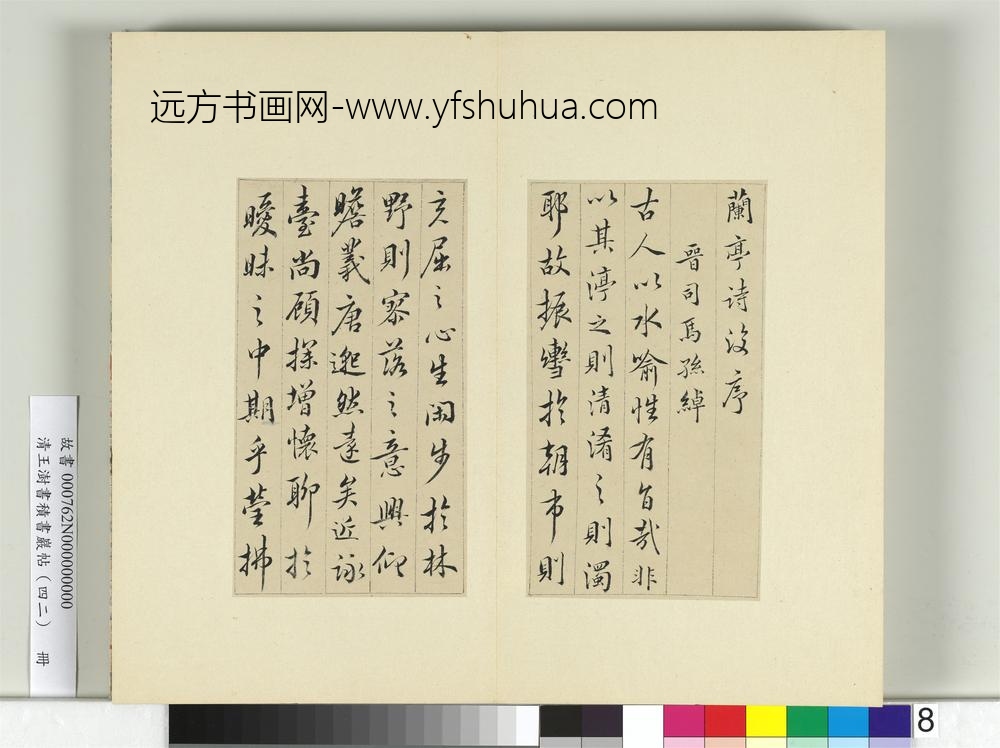 远方书画网-www.yfshuhua.com
蘭亭詩後序
晉司馬孫綽
古人以水喻性有旨哉非
以其渟之則清淆之則濁
耶故振轡於朝市則
充屈之心生閑步於林
野則寥落之意興仰
瞻羲唐邈然遠矣近詠
臺閣顧深增懷聊於
曖昧之中期乎瑩拂
故書 000762N000000000
清王澍書積書巖帖（四二） 冊
8